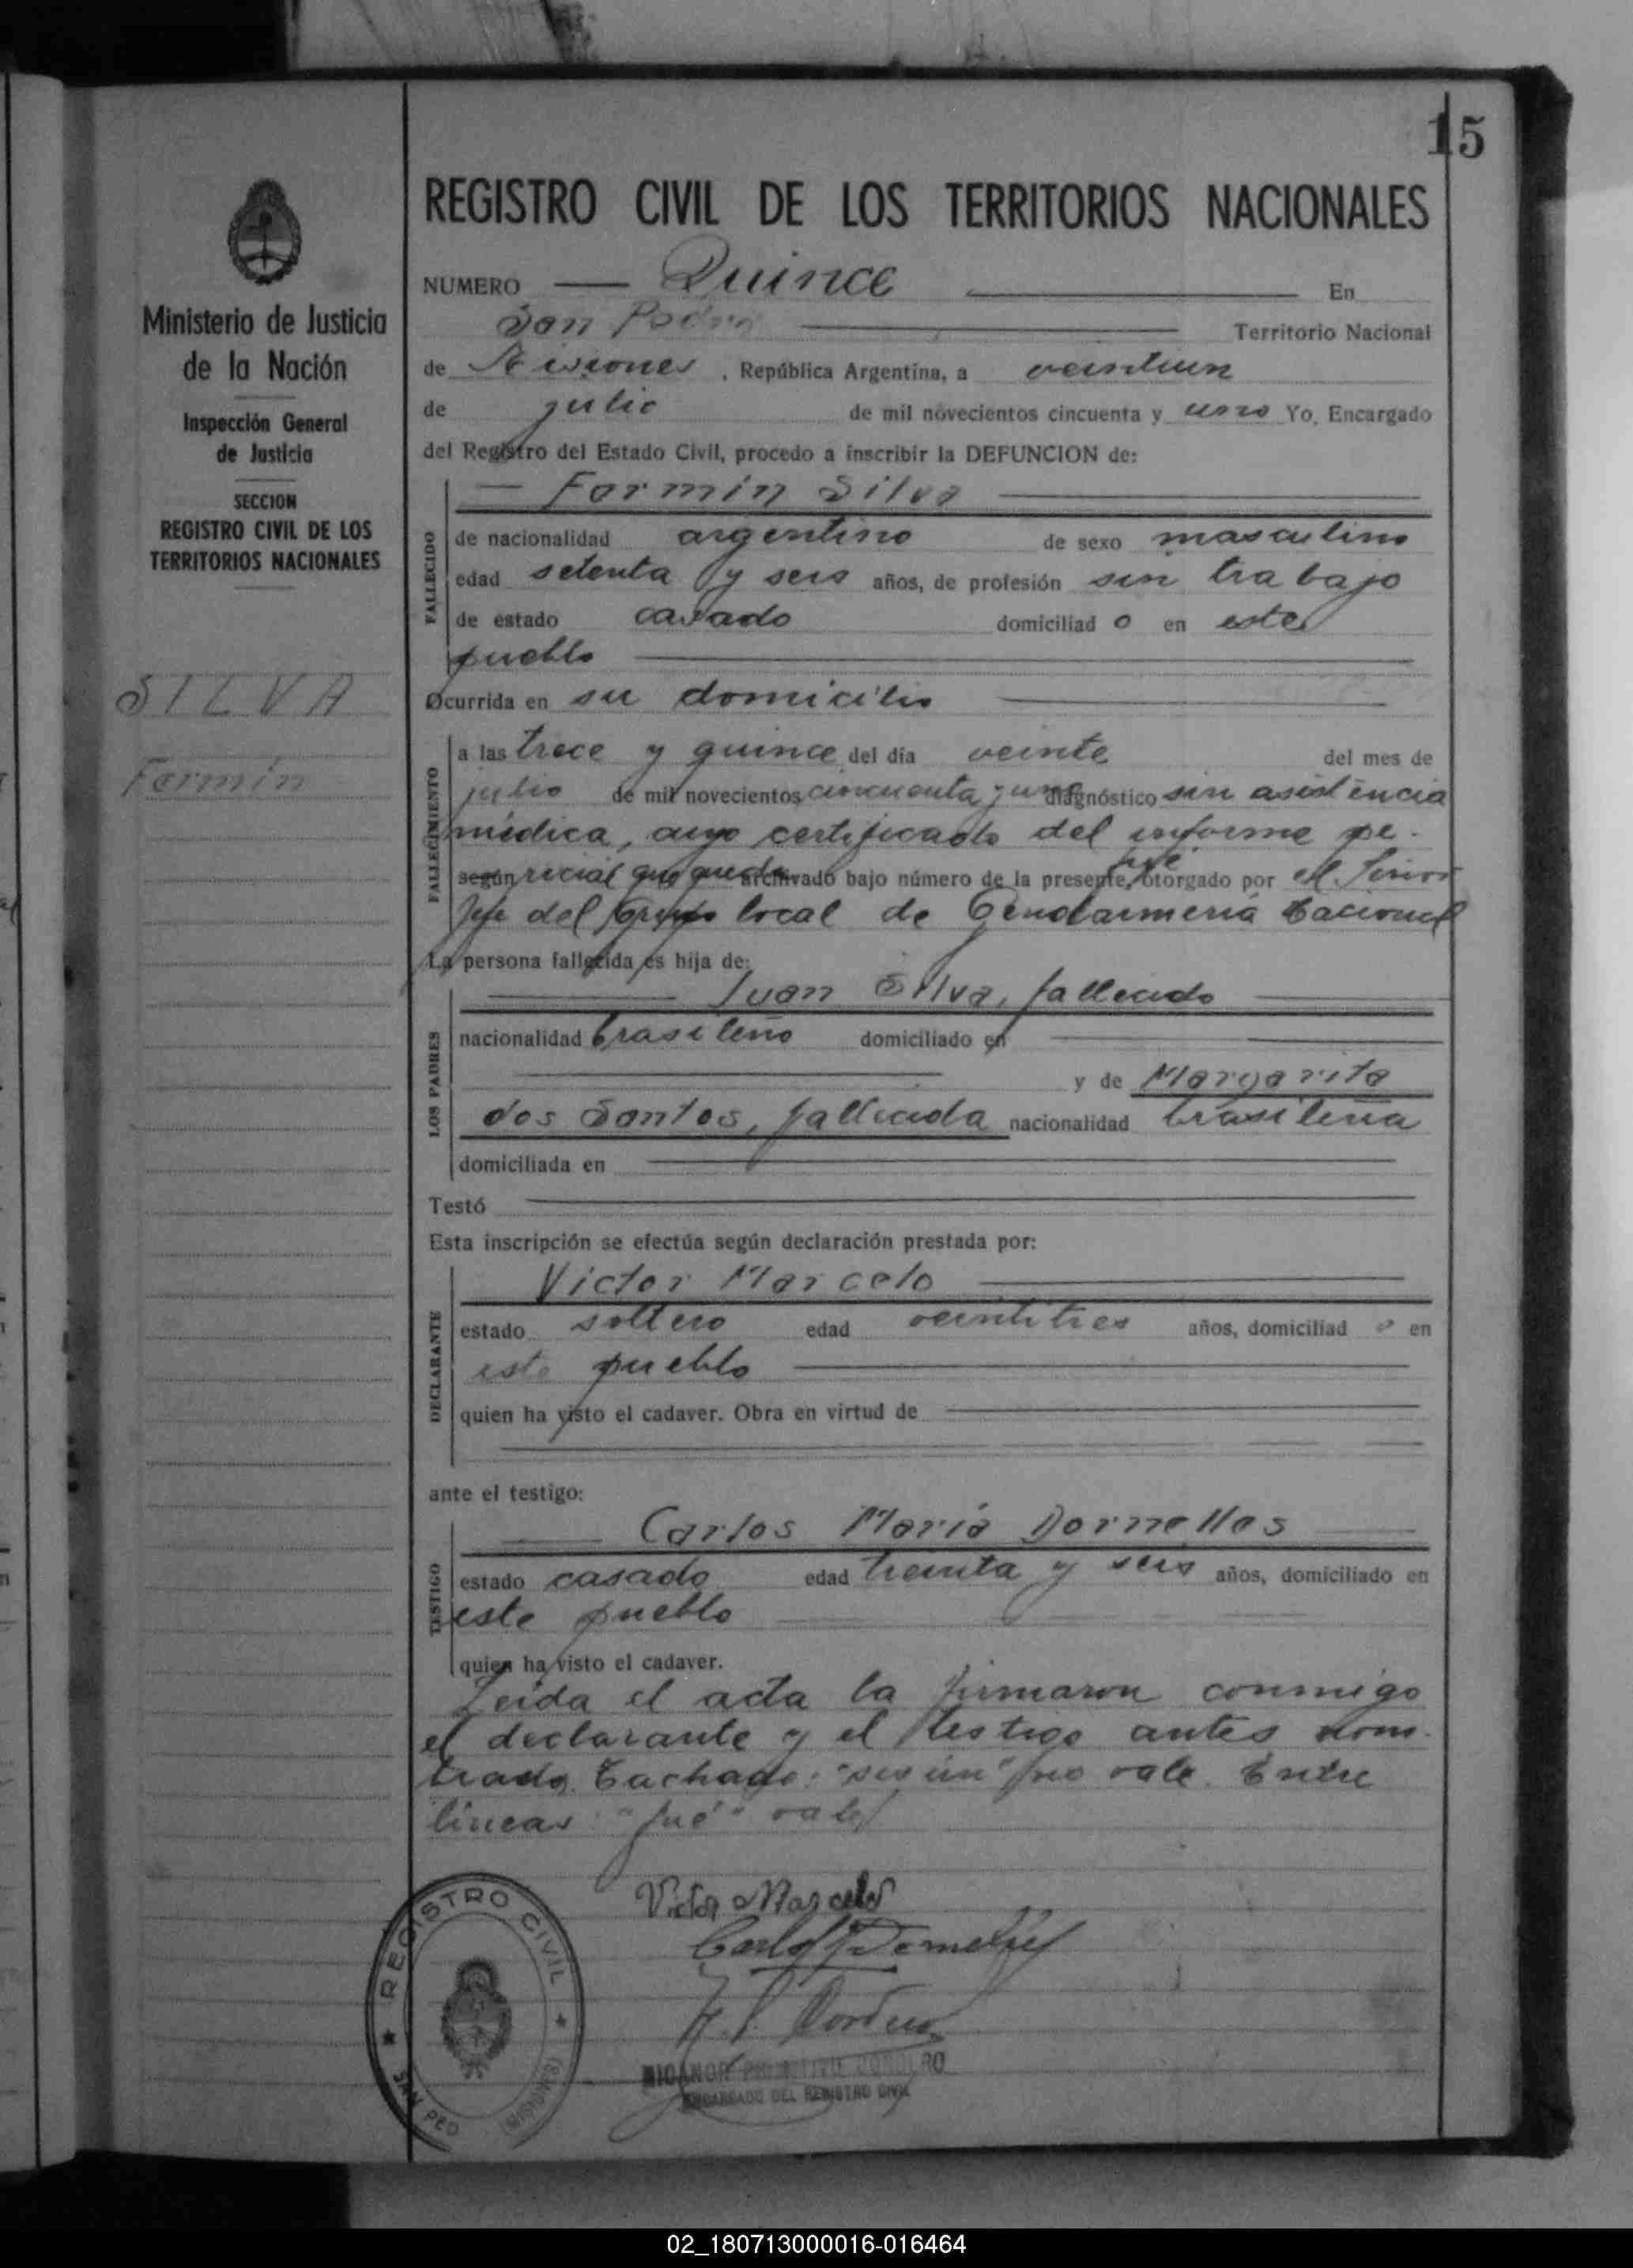 15
REGISTRO CIVIL DE LOS TERRITORIOS NACIONALES
Ministerio de Justicia
de la Nación
Inspección General
de Justicia
SECCION
REGISTRO CIVIL DE LOS
TERRITORIOS NACIONALES
SILVA
Fermín
NUMERO — Quince — En
San Pedro — Territorio Nacional
de Misiones, República Argentina, a veintiun
de julio de mil novecientos cincuenta y uno Yo, Encargado
del Registro del Estado Civil, procedo a inscribir la DEFUNCION de:
— Fermín Silva —
FALLECIDO
de nacionalidad argentino de sexo masculino
edad setenta y seis años, de profesión sin trabajo
de estado casado domiciliad o en este
pueblo —
Ocurrida en su domicilio —
FALLECIMIENTO
a las trece y quince del día veinte del mes de
julio de mil novecientos cincuenta y uno diagnóstico sin asistencia
médica, cuyo certificado del informe pe-
según ricial que queda archivado bajo número de la presente, fué otorgado por el Señor
Jefe del Grupo local de Gendarmería Nacional
La persona fallecida es hija de:
LOS PADRES
— Juan Silva, fallecido —
nacionalidad brasileño domiciliado en —
— y de Margarita
dos Santos, fallecida nacionalidad brasileña
domiciliada en —
Testó —
Esta inscripción se efectúa según declaración prestada por:
DECLARANTE
Victor Marcelo —
estado soltero edad veintitres años, domiciliad o en
este pueblo —
quien ha visto el cadaver. Obra en virtud de —
ante el testigo:
TESTIGO
— Carlos María Dornelles —
estado casado edad treinta y seis años, domiciliado en
este pueblo —
quien ha visto el cadaver.
Leída el acta la firmaron conmigo
el declarante y el testigo antes nom-
brado. Tachado: "según" no vale. Entre
líneas: "fué" vale
Victor Marcelo
Carlos Dornelles
REGISTRO CIVIL
SAN PEDRO (MISIONES)
ENCARGADO DEL REGISTRO CIVIL
02_180713000016-016464